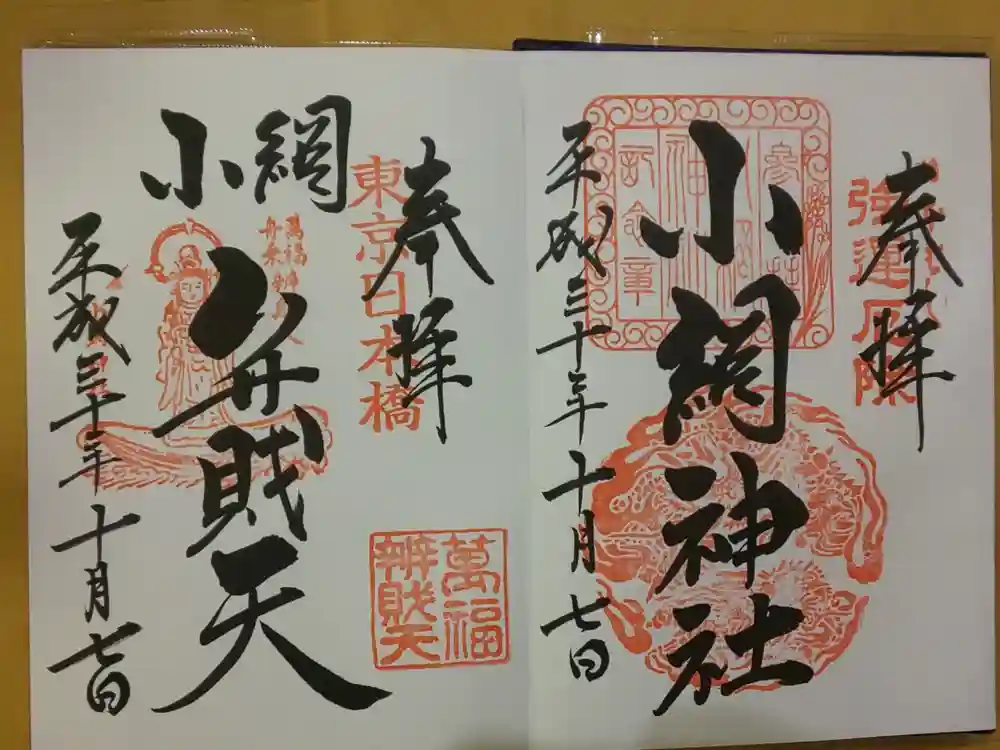 奉拝
強運厄除
小網神社
参拝
記念章
平成三十年十月七日
奉拝
東京日本橋
小網
弁財天
萬福
舟乗
萬福
辨財天
平成三十年十月七日